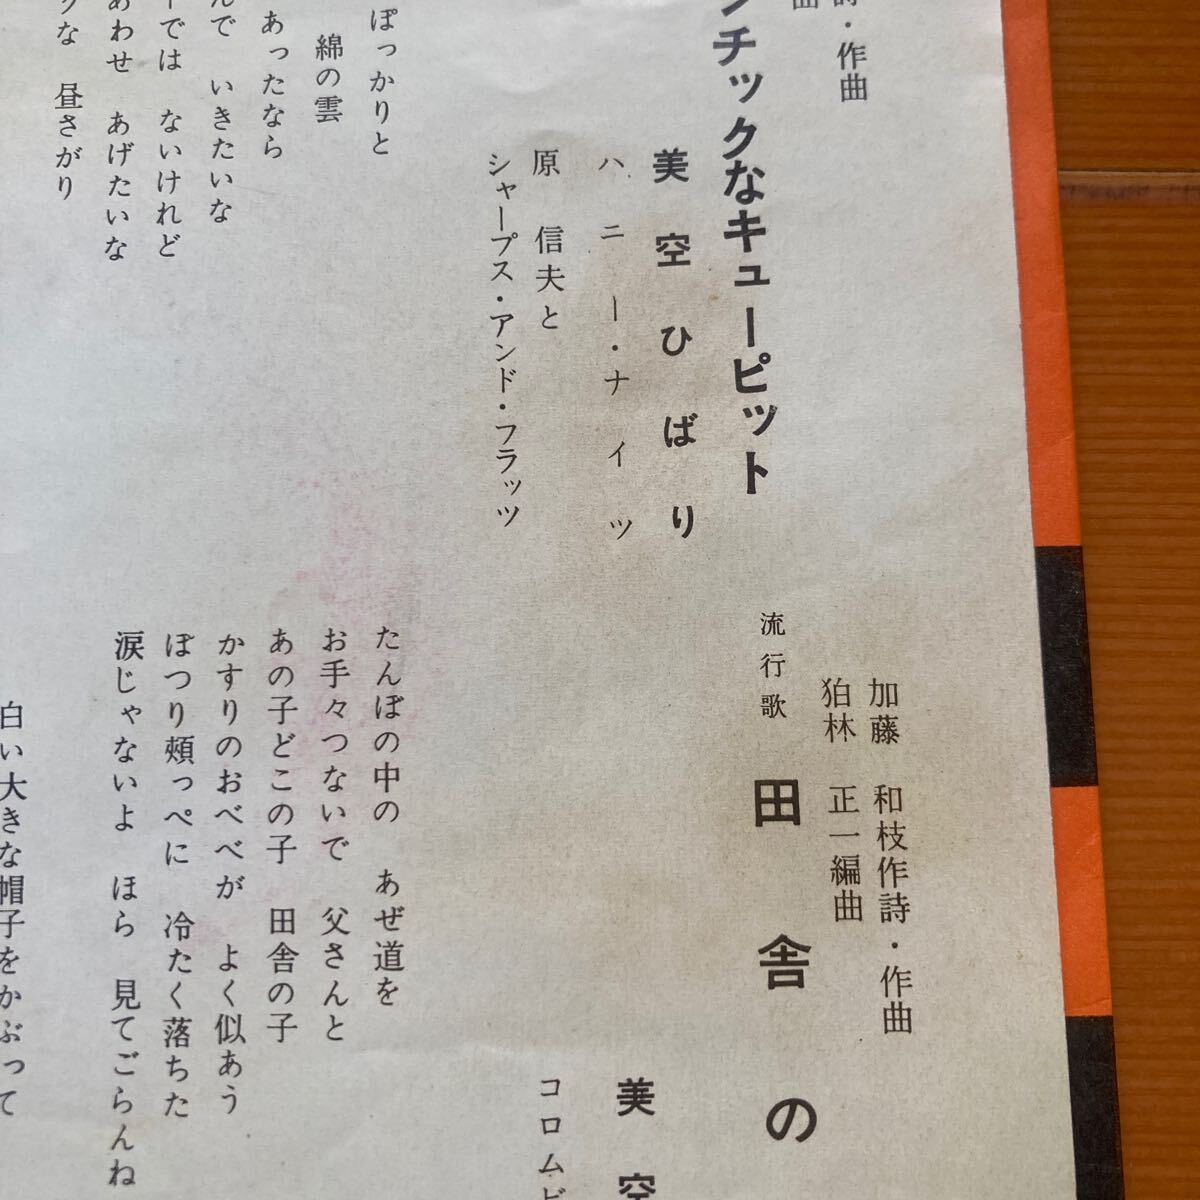 詩・作曲
曲
ンチックなキューピット
美空ひばり
ハニー・ナイツ
原信夫と
シャープス・アンド・フラッツ
ぽっかりと
綿の雲
あったなら
んで いきたいな
では ないけれど
あわせ あげたいな
な 昼さがり
加藤 和枝作詩・作曲
狛林 正一編曲
流行歌 田舎の
美空
コロムビ
たんぼの中の あぜ道を
お手々つないで 父さんと
あの子どこの子 田舎の子
かすりのおべべが よく似あう
ぽつり頬っぺに 冷たく落ちた
涙じゃないよ ほら 見てごらんね
白い大きな帽子をかぶって